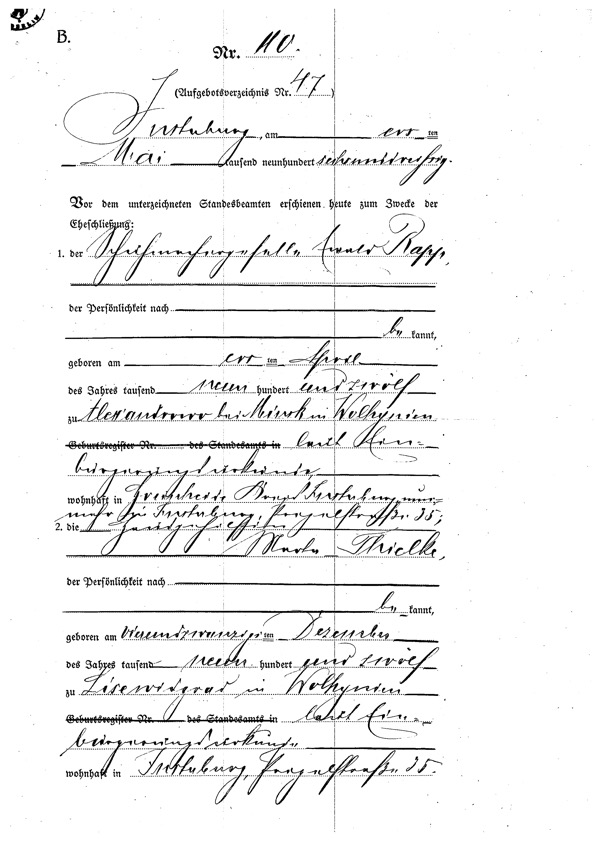 B.
Nr. 110.
(Aufgebotsverzeichnis Nr. 47)
Insterburg, am ersten
Mai tausend neunhundert sechsunddreißig.
Vor dem unterzeichneten Standesbeamten erschienen heute zum Zwecke der
Eheschließung:
1. der Schuhmachergeselle Ewald Rapp,
der Persönlichkeit nach
bekannt,
geboren am ersten April
des Jahres tausend neun hundert und zwölf
zu Alexandrowo bei Minsk in Wolhynien
Geburtsregister Nr. des Standesamts in laut Ein-
bürgerungsurkunde,
wohnhaft in Kreis Insterburg, nun-
mehr in Insterburg, Pregelstraße 25,
2. die
Marta Thielke,
der Persönlichkeit nach
bekannt,
geboren am vierundzwanzigsten Dezember
des Jahres tausend neun hundert und zwölf
zu in Wolhynien
Geburtsregister Nr. des Standesamts in laut Ein-
bürgerungsurkunde
wohnhaft in Insterburg, Pregelstraße 25.